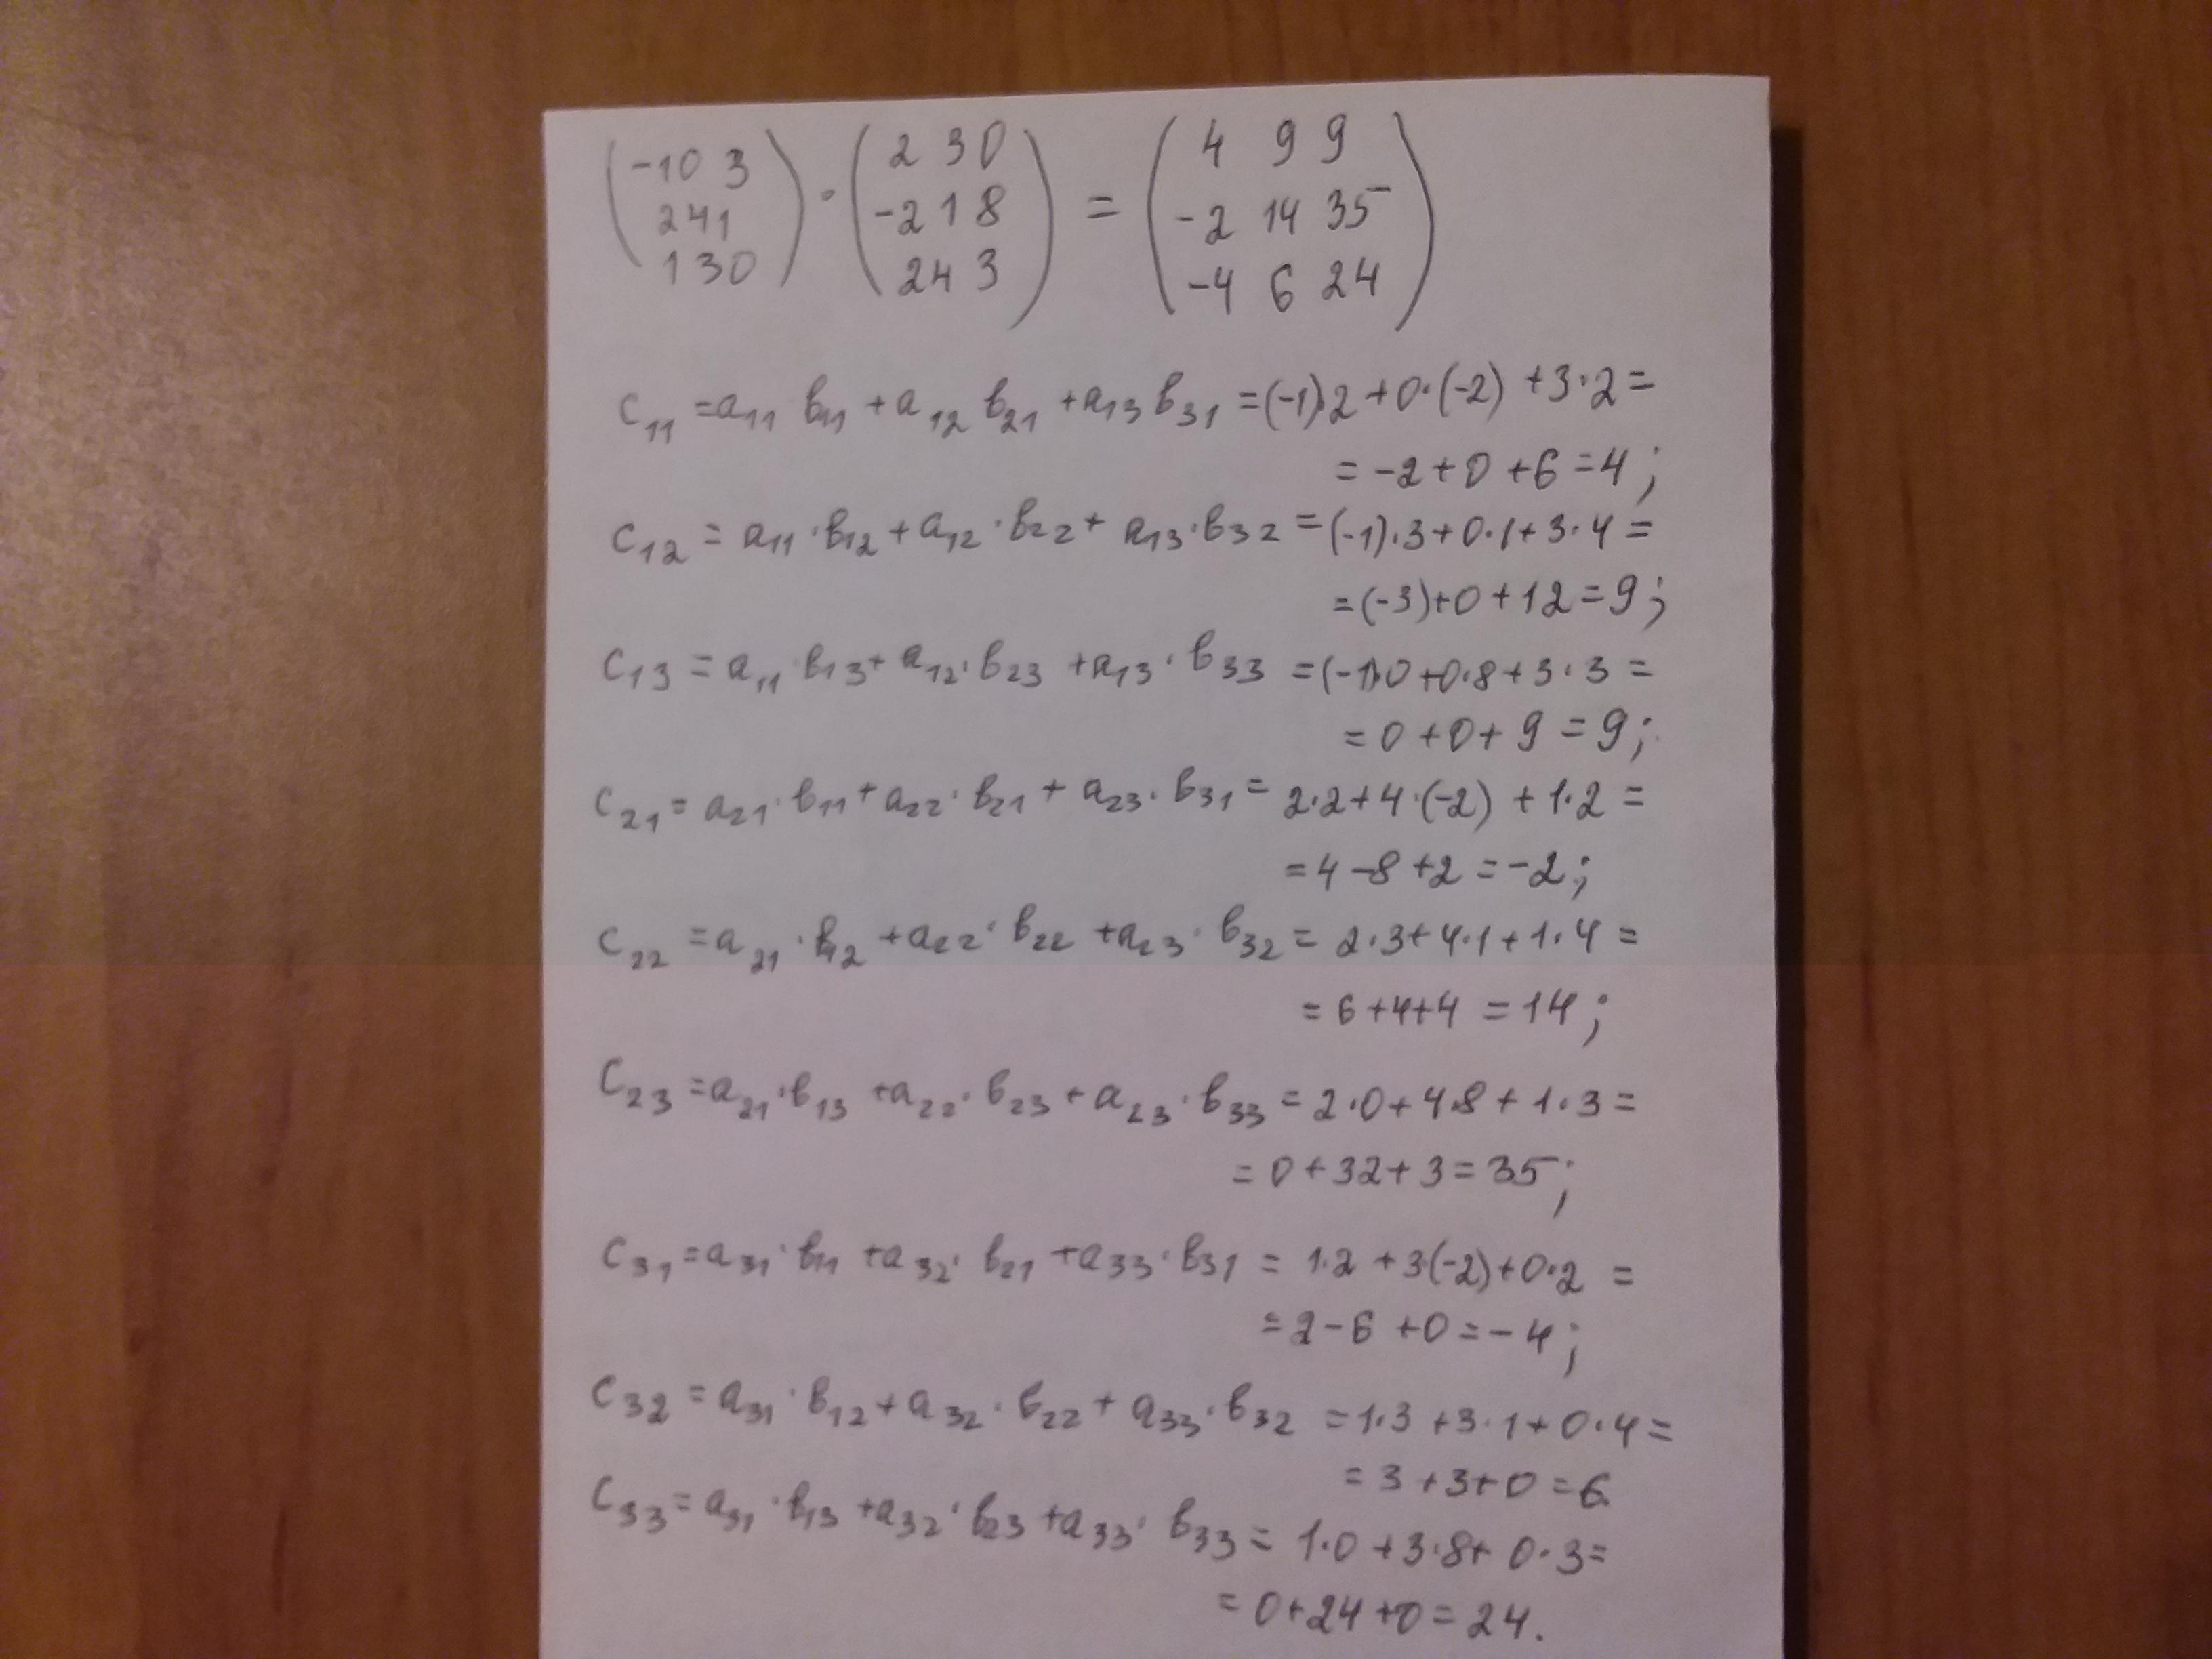 (-1 0 3) (2 3 0) (4 9 9)
(2 4 1) · (-2 1 8) = (-2 14 35)
(1 3 0) (2 4 3) (-4 6 24)
c₁₁ = a₁₁ b₁₁ + a₁₂ b₂₁ + a₁₃ b₃₁ = (-1)·2 + 0·(-2) + 3·2 =
= -2 + 0 + 6 = 4;
c₁₂ = a₁₁·b₁₂ + a₁₂·b₂₂ + a₁₃·b₃₂ = (-1)·3 + 0·1 + 3·4 =
= (-3) + 0 + 12 = 9;
c₁₃ = a₁₁·b₁₃ + a₁₂·b₂₃ + a₁₃·b₃₃ = (-1)·0 + 0·8 + 3·3 =
= 0 + 0 + 9 = 9;
c₂₁ = a₂₁·b₁₁ + a₂₂·b₂₁ + a₂₃·b₃₁ = 2·2 + 4·(-2) + 1·2 =
= 4 - 8 + 2 = -2;
c₂₂ = a₂₁·b₁₂ + a₂₂·b₂₂ + a₂₃·b₃₂ = 2·3 + 4·1 + 1·4 =
= 6 + 4 + 4 = 14;
c₂₃ = a₂₁·b₁₃ + a₂₂·b₂₃ + a₂₃·b₃₃ = 2·0 + 4·8 + 1·3 =
= 0 + 32 + 3 = 35;
c₃₁ = a₃₁·b₁₁ + a₃₂·b₂₁ + a₃₃·b₃₁ = 1·2 + 3·(-2) + 0·2 =
= 2 - 6 + 0 = -4;
c₃₂ = a₃₁·b₁₂ + a₃₂·b₂₂ + a₃₃·b₃₂ = 1·3 + 3·1 + 0·4 =
= 3 + 3 + 0 = 6.
c₃₃ = a₃₁·b₁₃ + a₃₂·b₂₃ + a₃₃·b₃₃ = 1·0 + 3·8 + 0·3 =
= 0 + 24 + 0 = 24.